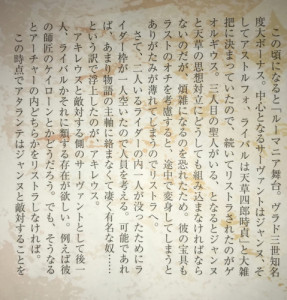 この頃になると『ルーマニア舞台。ヴラド三世知名
度大ボーナス。中心となるサーヴァントはジャンヌ、そ
してアストルフォ。ライバルは天草四郎時貞』と大雑
把に決まっていたので、続いてリストラされたのがゲ
オルギウス。三人目の聖人がいる、となるとジャンヌ
と天草の思想対立にどうしても組み込まなければなら
ないのだが、煩雑になるのを恐れたため。彼の宝具も
ラストのオチを考慮すると、途中で変身してしまうと
ありがたみが薄れてしまうのでリストラへ。
さて、二人いるライダーの内一人が没ったためにラ
イダー枠が一人空いたので人員を考える。可能であれ
ば、あまり物語の主軸に絡まなくて凄く有名な奴……
という訳で浮上したのが、アキレウス。
アキレウスと敵対する側のサーヴァントとして後一
人、ライバルかそれに類する存在が欲しい。例えば彼
の師匠のケイローンとかどうだろう。でも、そうなる
とアーチャーの内どちらかをリストラしなければ。
この時点でアタランテはジャンヌと敵対することを